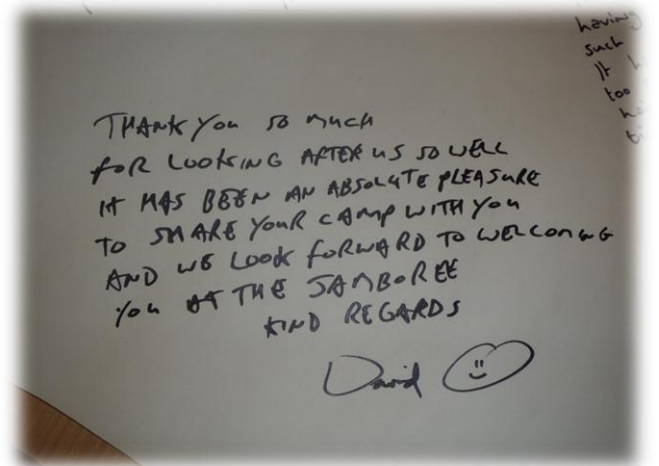 THANK YOU SO MUCH
FOR LOOKING AFTER US SO WELL
IT HAS BEEN AN ABSOLUTE PLEASURE
TO SHARE YOUR CAMP WITH YOU
AND WE LOOK FORWARD TO WELCOMING
YOU AT THE JAMBOREE
KIND REGARDS
David
having
such
It
too